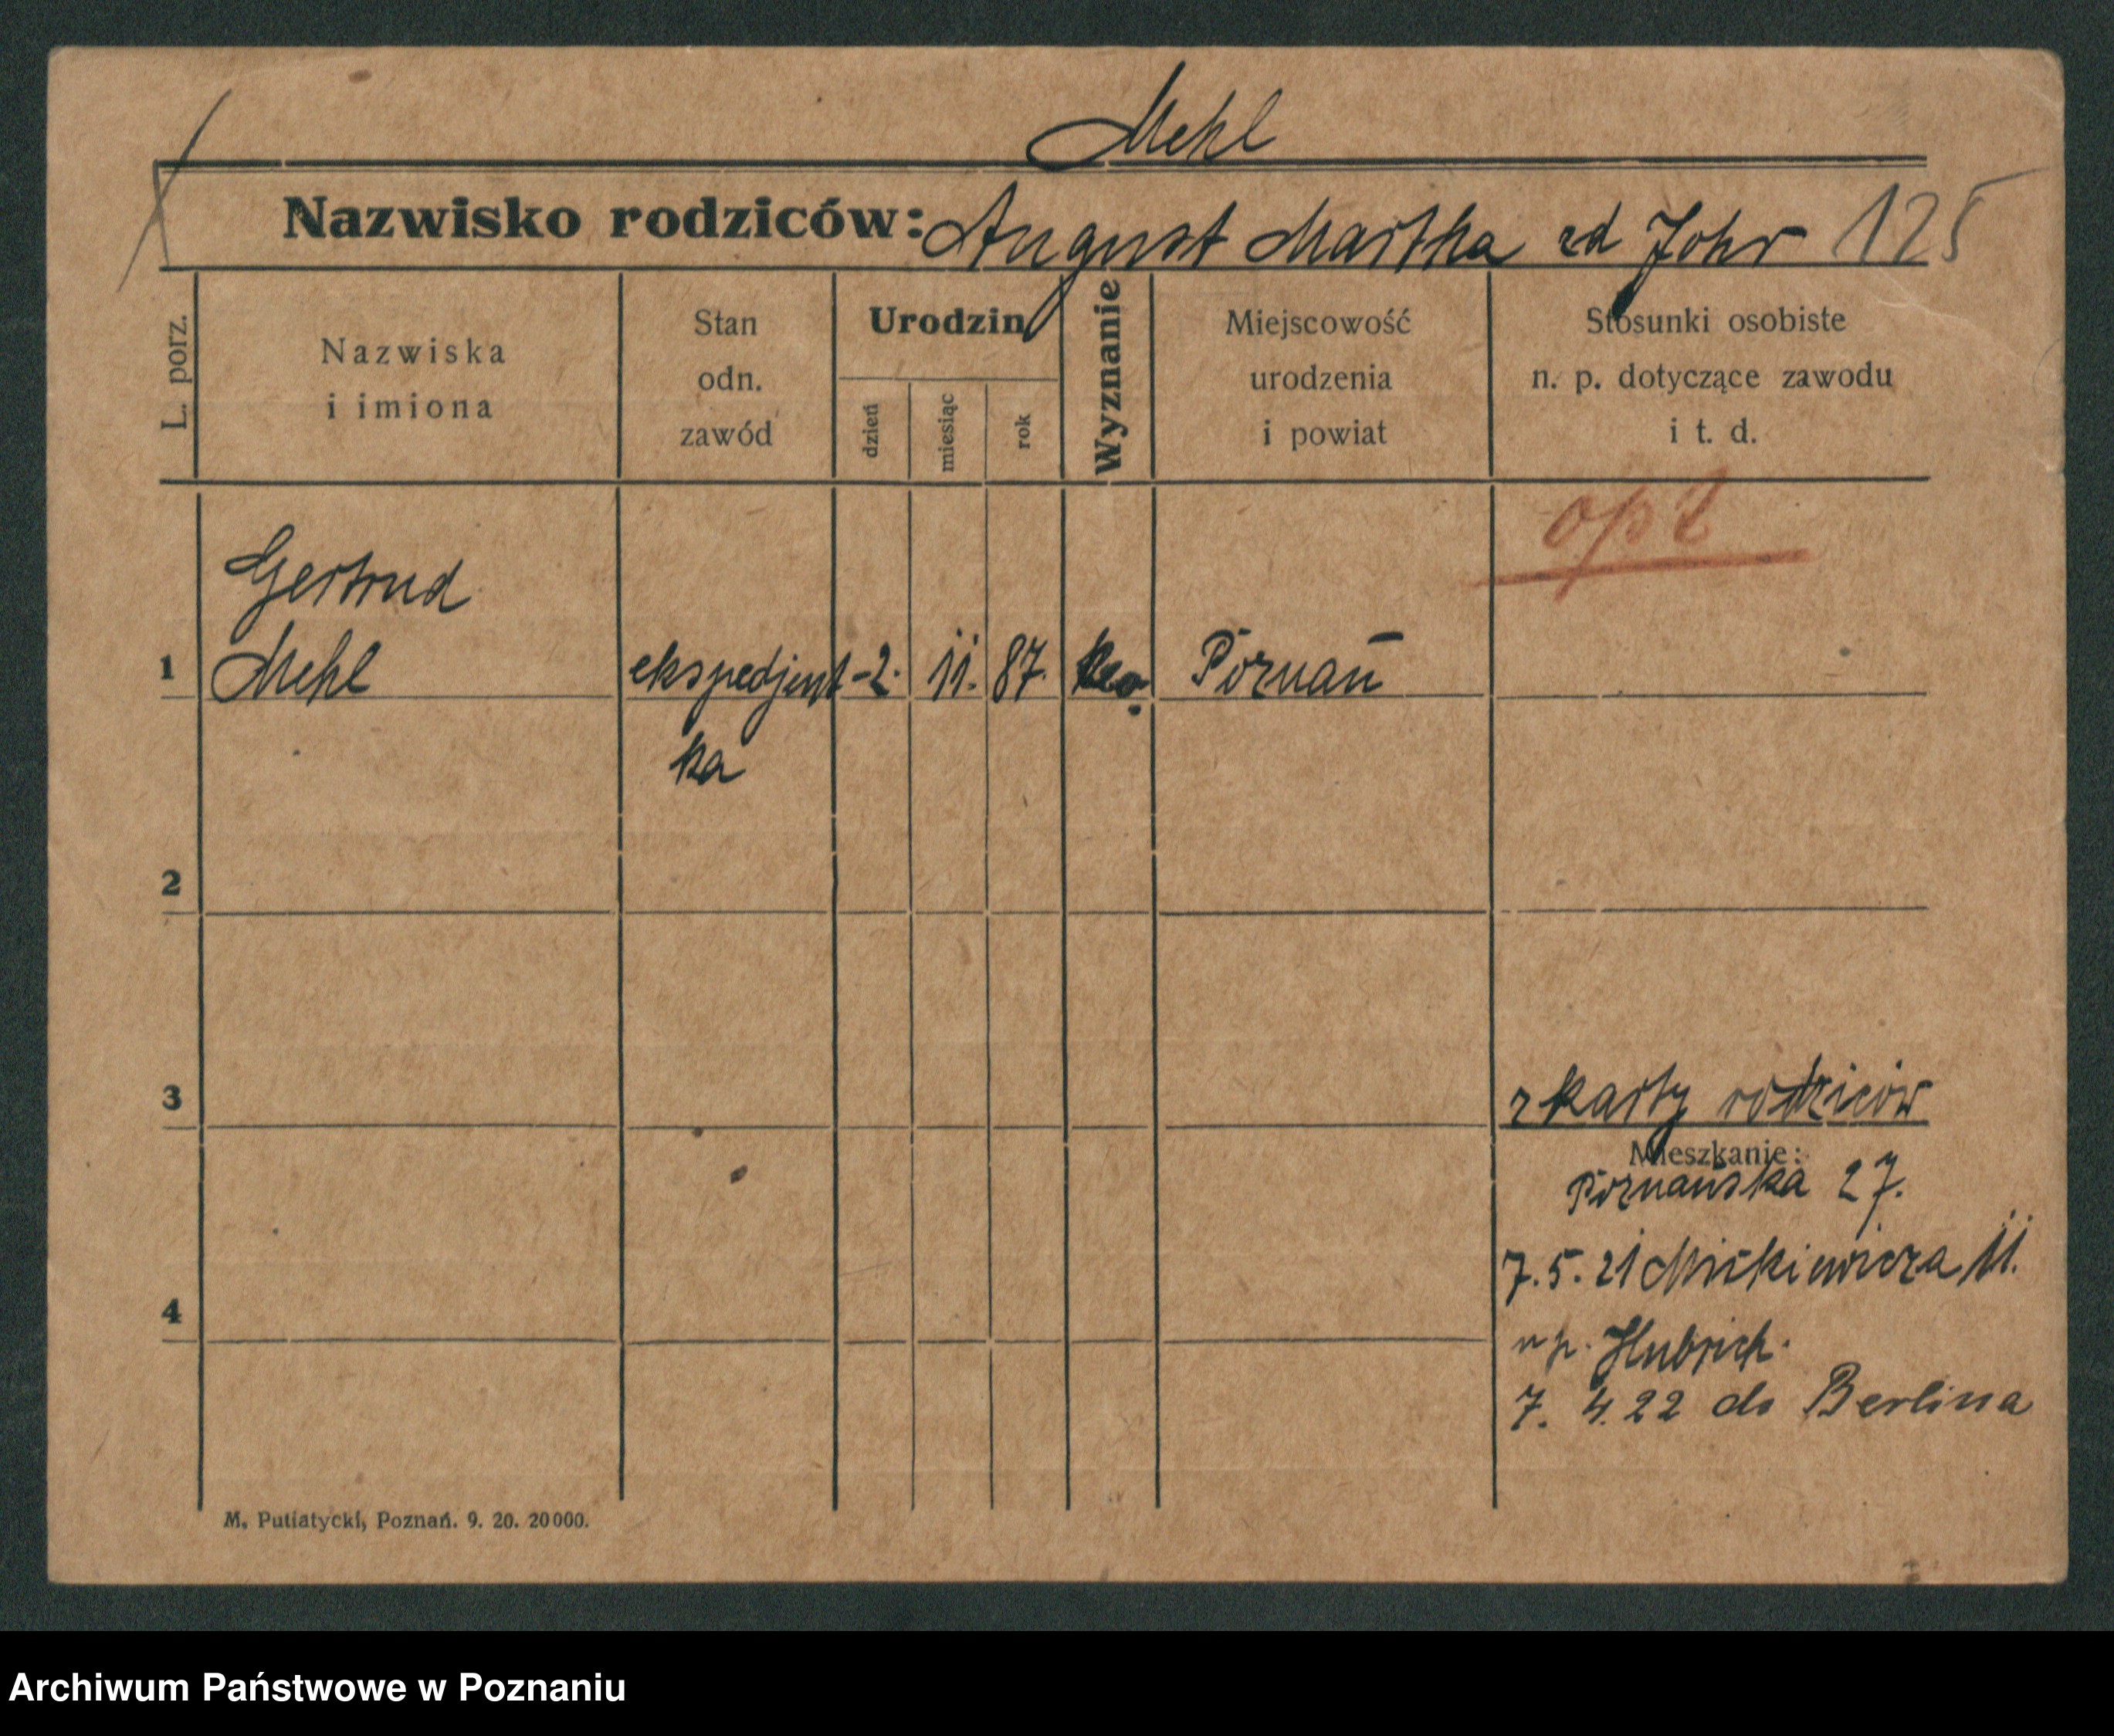 Mehl
Nazwisko rodziców: August Martha zd Johr 125
L. porz.
Nazwiska
i imiona
Stan
odn.
zawód
Urodzin
dzień
miesiąc
rok
Wyznanie
Miejscowość
urodzenia
i powiat
Stosunki osobiste
n. p. dotyczące zawodu
i t. d.
opt
Gertrud
1 Mehl ekspedjent- 2. 11. 87. Poznań
ka
2
3
z karty rodziców
Mieszkanie:
Poznańska 27.
7.5.21 Mickiewicza 11.
4
u p. Hubrich.
7. 4. 22 do Berlina
M. Putiatycki, Poznań. 9. 20. 20000.
Archiwum Państwowe w Poznaniu